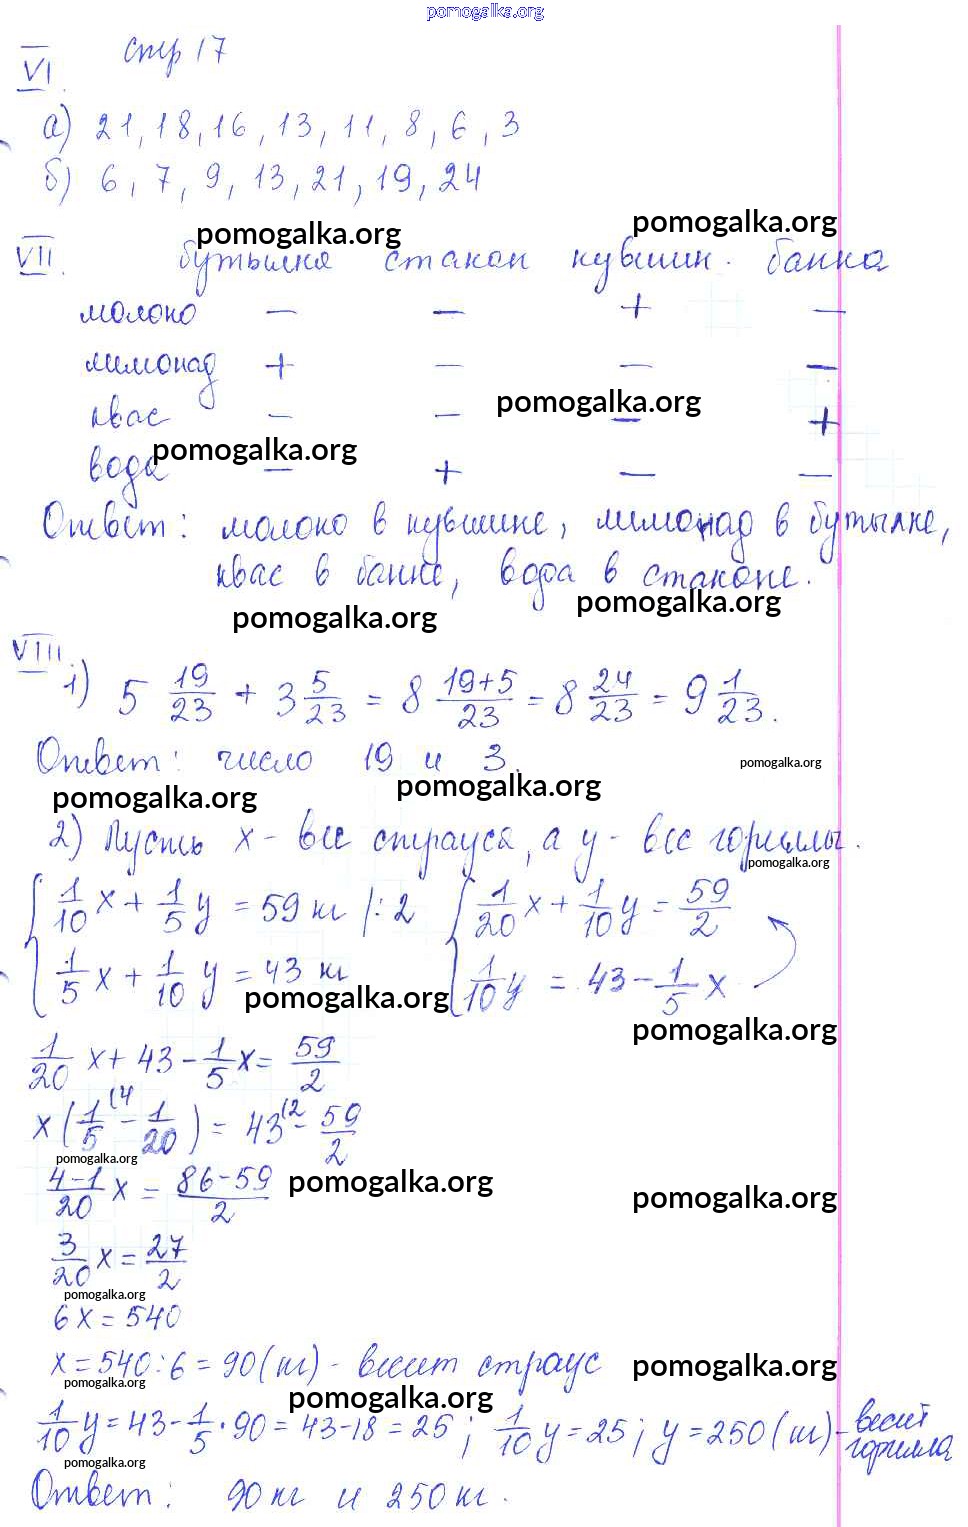 pomogalka.org
стр 17
VI.
а) 21, 18, 16, 13, 11, 8, 6, 3
б) 6, 7, 9, 13, 21, 19, 24
pomogalka.org pomogalka.org
VII. бутылка стакан кувшин. банка
молоко — — + —
лимонад + — — —
pomogalka.org
квас — — — +
pomogalka.org
вода — + — —
Ответ: молоко в кувшине, лимонад в бутылке,
квас в банке, вода в стакане.
pomogalka.org pomogalka.org
VIII.
1) 5 19/23 + 3 5/23 = 8 (19+5)/23 = 8 24/23 = 9 1/23.
Ответ: число 19 и 3.
pomogalka.org
pomogalka.org pomogalka.org
2) Пусть x - вес страуса, а y - вес гориллы.
pomogalka.org
{ 1/10 x + 1/5 y = 59 кг |:2 { 1/20 x + 1/10 y = 59/2
1/5 x + 1/10 y = 43 кг 1/10 y = 43 - 1/5 x
pomogalka.org
pomogalka.org
1/20 x + 43 - 1/5 x = 59/2
x (1/5 (4 - 1/20) = 43 (2 - 59/2
pomogalka.org
(4-1)/20 x = (86-59)/2
pomogalka.org pomogalka.org
3/20 x = 27/2
pomogalka.org
6x = 540
x = 540 : 6 = 90 (кг) - весит страус
pomogalka.org
pomogalka.org pomogalka.org
1/10 y = 43 - 1/5 · 90 = 43 - 18 = 25; 1/10 y = 25; y = 250 (кг) - весит горилла
pomogalka.org
Ответ: 90 кг и 250 кг.